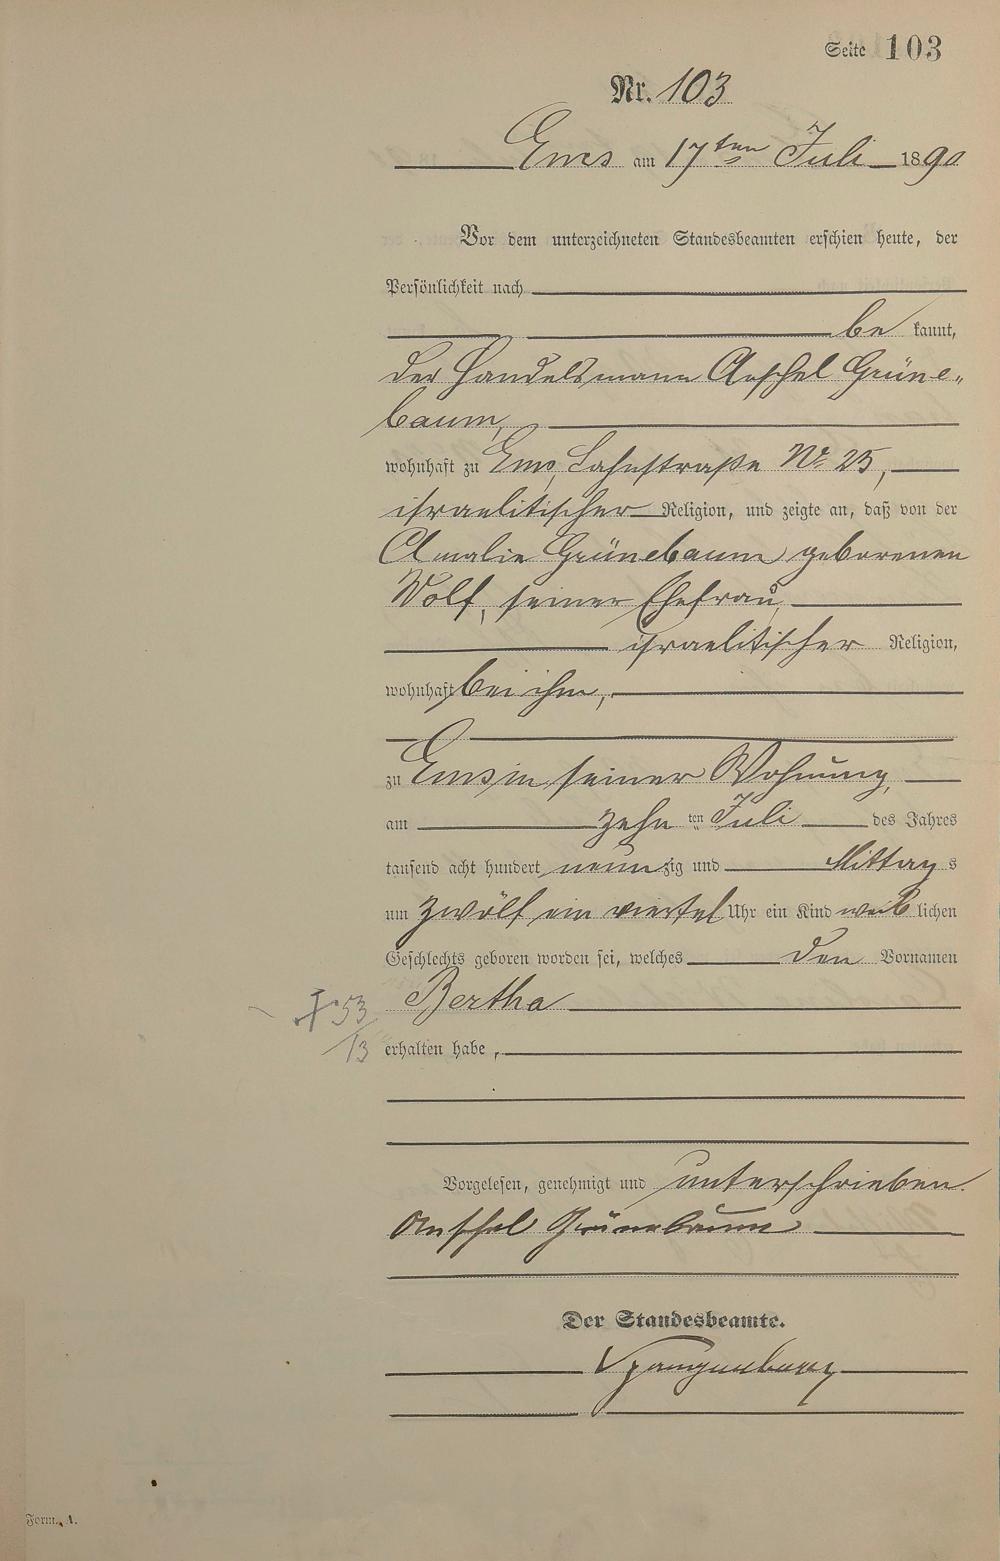 Seite 103
Nr. 103
Ems am 17ten Juli 1890
Vor dem unterzeichneten Standesbeamten erschien heute, der
Persönlichkeit nach
be kannt,
der Handelsmann Anschel Grüne-
baum,
wohnhaft zu Ems, Lahnstraße No 25,
israelitischer Religion, und zeigte an, daß von der
Amalie Grünebaum geborenen
Wolf, seiner Ehefrau,
israelitischer Religion,
wohnhaft bei ihm,
zu Ems in seiner Wohnung,
am zehn ten Juli des Jahres
tausend acht hundert neun zig und Mittag s
um zwölf ein viertel Uhr ein Kind weib lichen
Geschlechts geboren worden sei, welches den Vornamen
Bertha
53
13
erhalten habe,
Vorgelesen, genehmigt und unterschrieben.
Anschel Grünebaum
Der Standesbeamte.
Spangenberg
Form. A.